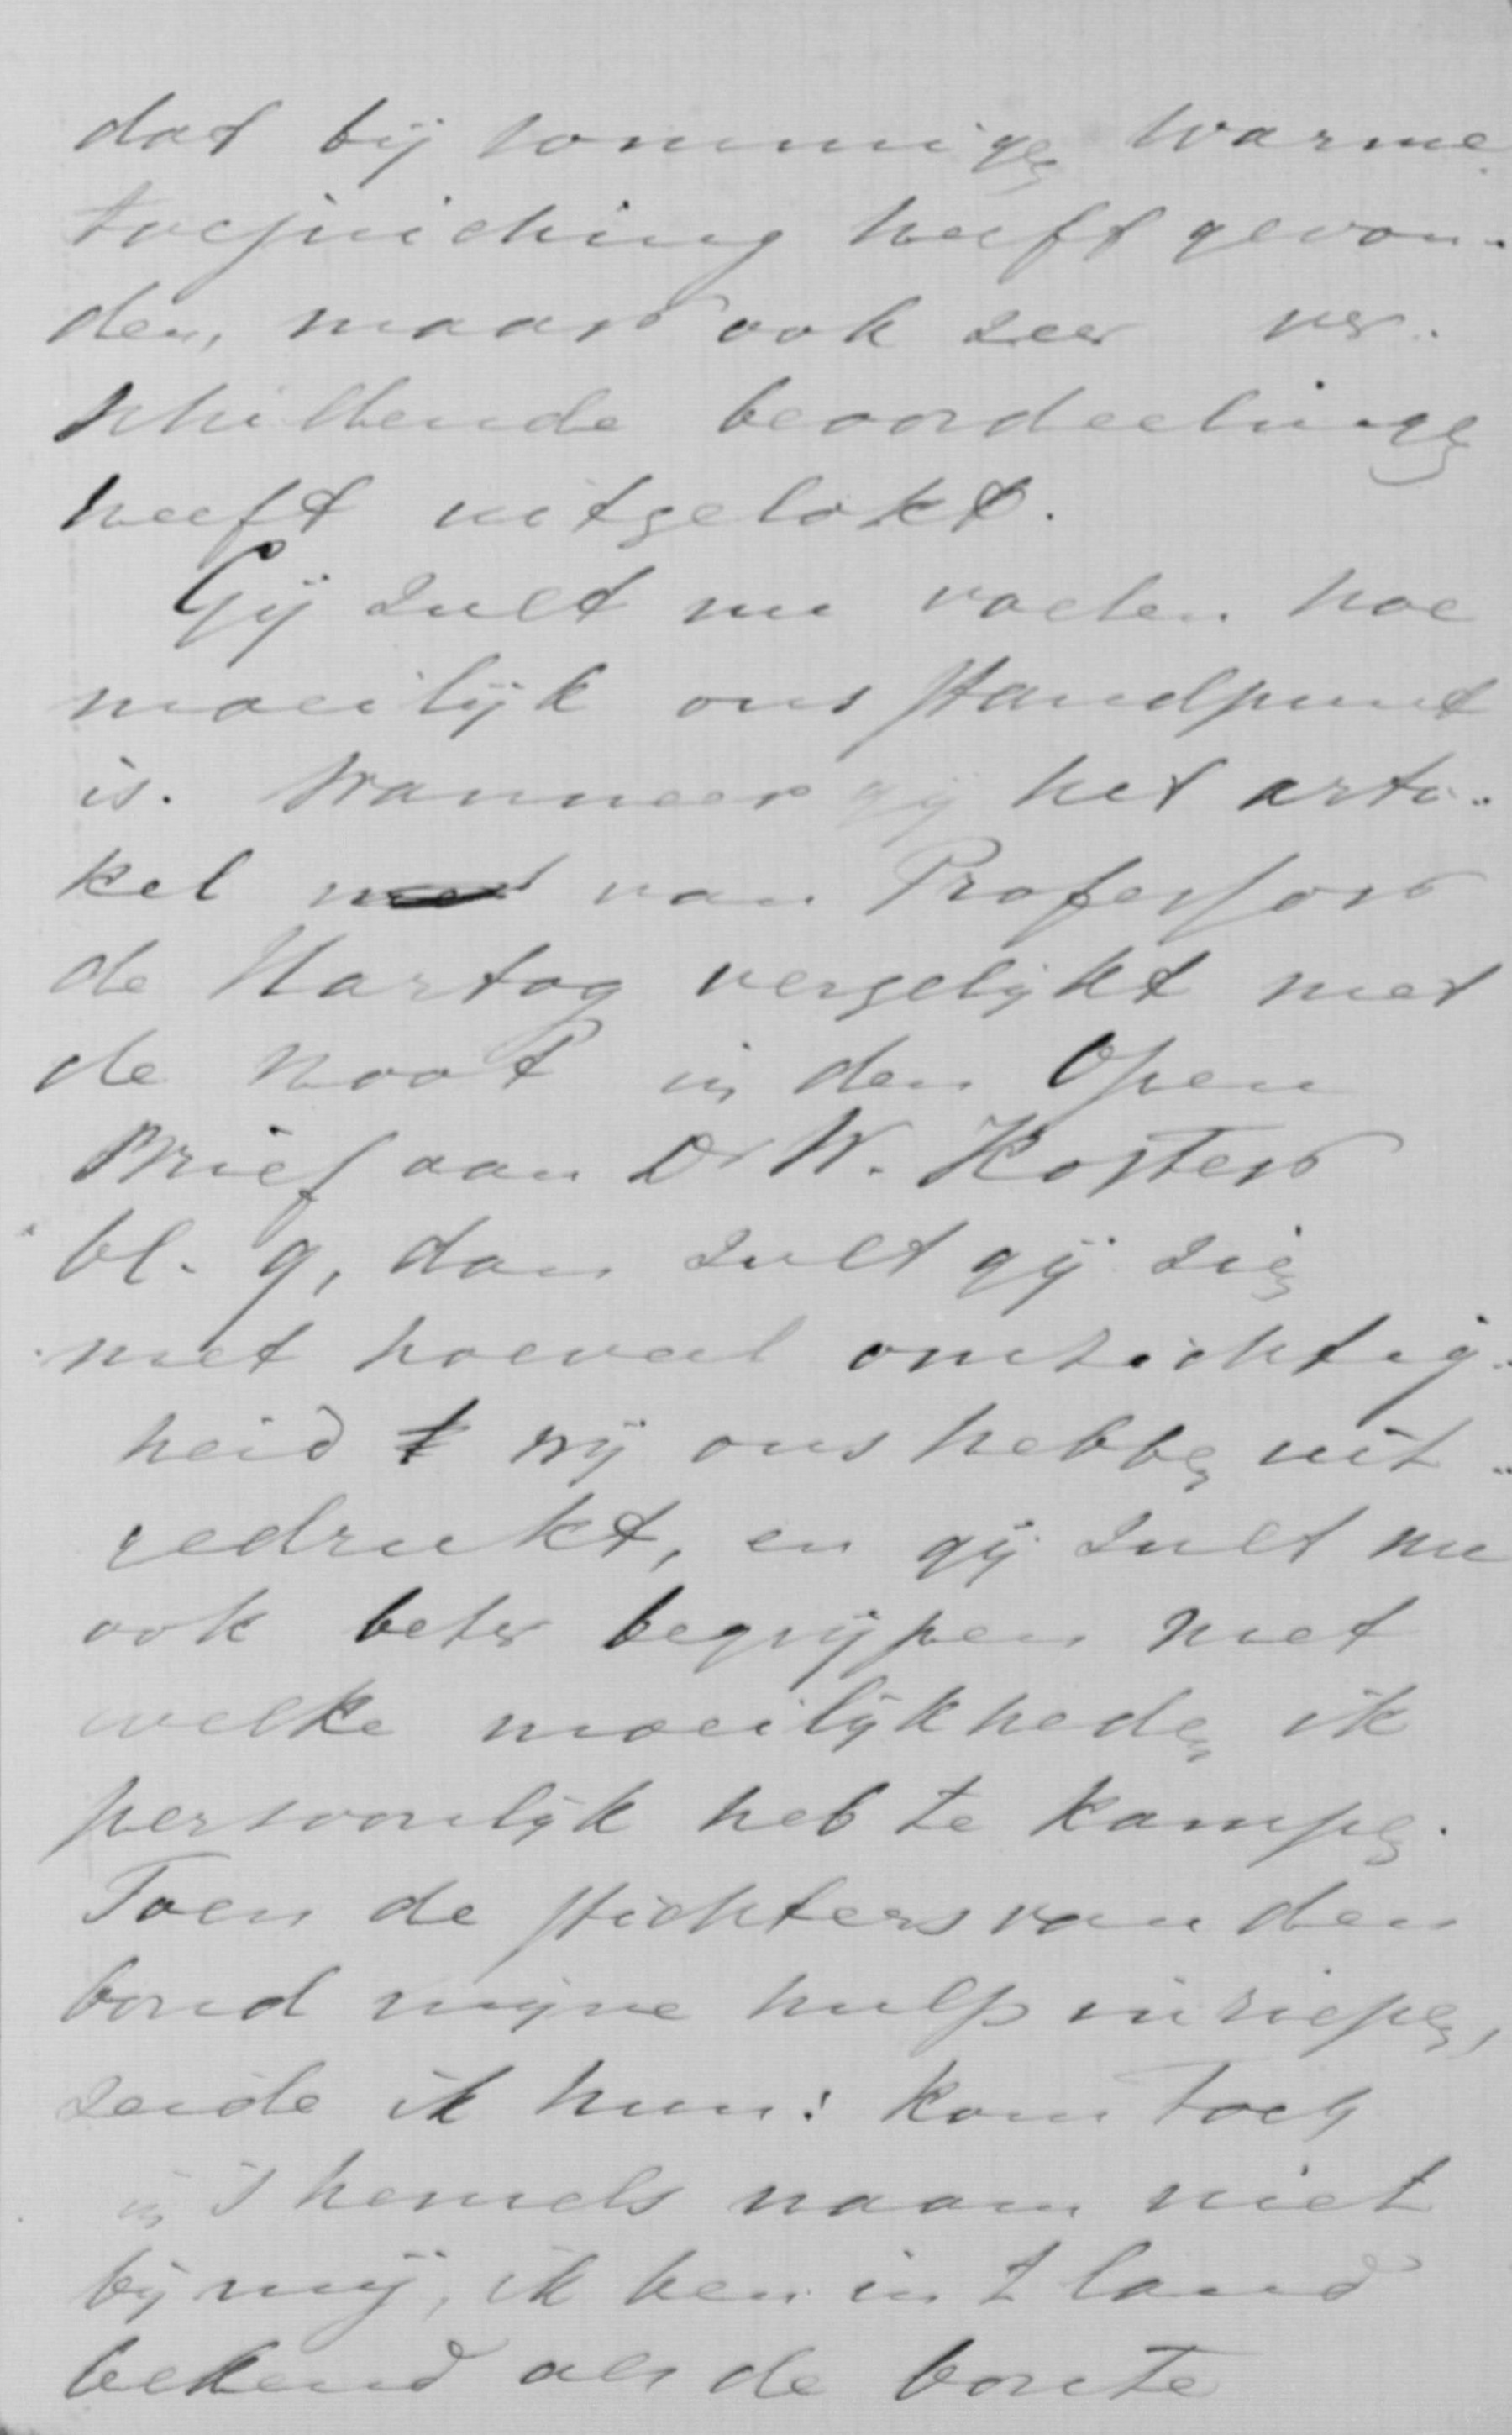 dat bij sommigen warme
toejuiching heeft gevon-
den, maar ook zeer ver-
schillende beoordeelingen
heeft uitgelokt.
Gij zult nu voelen hoe
moeilijk ons standpunt
is. Wanneer gij het arti-
kel van Professor
de Hartog vergelijkt met
de noot in den Open
Brief aan Dr W. Koster
bl. 9, dan zult gij zien
met hoeveel omzichtig-
heid wij ons hebben uit-
gedrukt, en gij zult nu
ook beter begrijpen met
welke moeilijkheden ik
persoonlijk heb te kampen.
Toen de stichters van den
bond mijne hulp inriepen,
zeide ik hun: kom toch
in 's hemels naam niet
bij mij, ik ben in 't land
bekend als de bonte